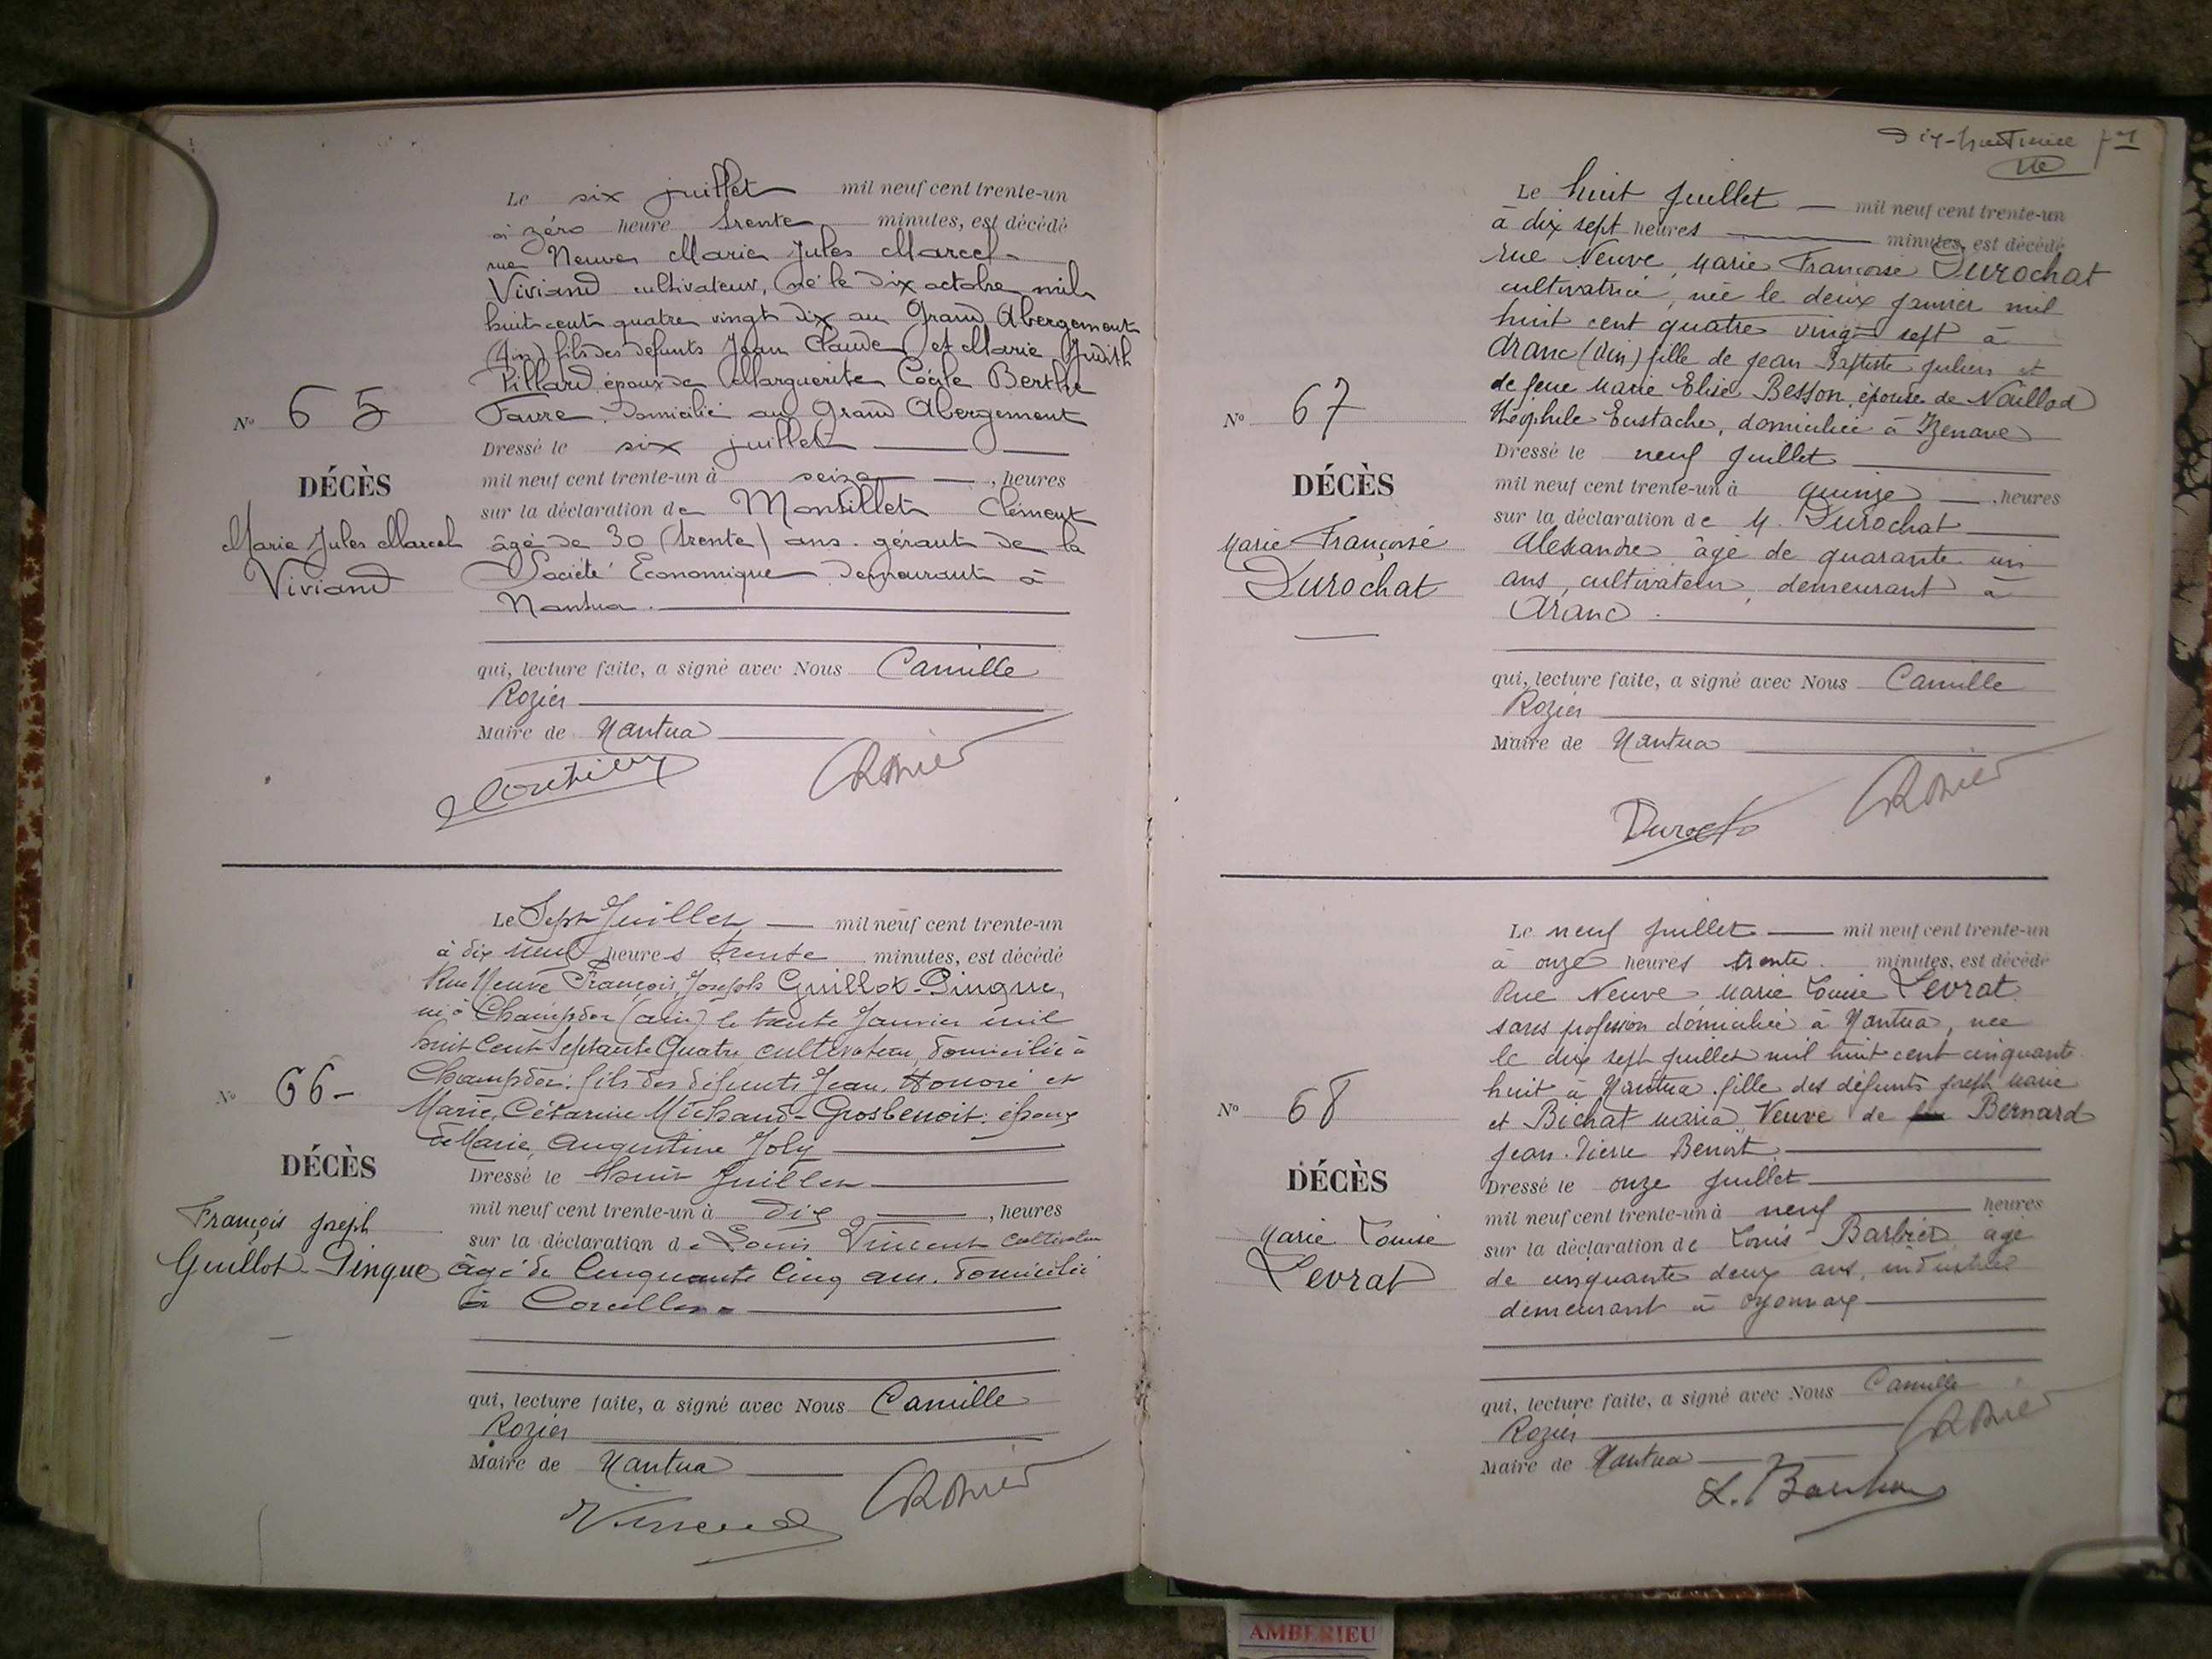 Le six juillet mil neuf cent trente-un
à zéro heure trente minutes, est décédé
rue Neuve Marie Jules Marcel
Viviand cultivateur, né le dix octobre mil
huit cent quatre vingt dix au Grand Abergement
(Ain) fils des défunts Jean Claude et Marie Judith
Pillard époux de Marguerite Cécile Berthe
Favre. Domicilié au Grand Abergement
No 65
DÉCÈS
Marie Jules Marcel
Viviand
Dressé le six juillet
mil neuf cent trente-un à seize, heures
sur la déclaration de Montillet Clément
âgé de 30 (trente) ans. gérant de la
Société Economique demeurant à
Nantua.
qui, lecture faite, a signé avec Nous Camille
Rozier
Maire de Nantua
Le Sept Juillet mil neuf cent trente-un
à dix neuf heures trente minutes, est décédé
Rue Neuve François, Joseph Guillot-Pingue,
né à Champdor (ain) le trente Janvier mil
huit Cent Septante Quatre cultivateur, domicilié à
Champdor. fils des défunts Jean, Honoré et
Marie, Césarine Michaud-Grosbenoit. époux
de Marie, Augustine Joly
No 66-
DÉCÈS
François Joseph
Guillot-Pingue
Dressé le huit Juillet
mil neuf cent trente-un à dix, heures
sur la déclaration de Louis Vincent cultivateur
âgé de Cinquante Cinq ans. domicilié
à Corcelles
qui, lecture faite, a signé avec Nous Camille
Rozier
Maire de Nantua
Vincend
71
Le huit Juillet mil neuf cent trente-un
à dix sept heures minutes, est décédé
rue Neuve, Marie Françoise Durochat
cultivatrice, née le deux Janvier mil
huit cent quatre vingt sept à
Aranc (Ain) fille de Jean Baptiste Julien et
de feue Marie Elise Besson, épouse de Naillod
Théophile Eustache, domiciliée à Izenave
No 67
DÉCÈS
Marie Françoise
Durochat
Dressé le neuf Juillet
mil neuf cent trente-un à quinze, heures
sur la déclaration de M. Durochat
Alexandre âgé de quarante un
ans, cultivateur, demeurant à
Aranc.
qui, lecture faite, a signé avec Nous Camille
Rozier
Maire de Nantua
Le neuf Juillet mil neuf cent trente-un
à onze heures trente minutes, est décédé
Rue Neuve, Marie Louise Levrat
sans profession domiciliée à Nantua, née
le dix sept Juillet mil huit cent cinquante
huit à Nantua. fille des défunts Joseph Marie
et Bichat Maria, Veuve de Bernard
Jean-Pierre Benoit.
No 68
DÉCÈS
Marie Louise
Levrat
Dressé le onze Juillet
mil neuf cent trente-un à neuf heures
sur la déclaration de Louis Barbier âgé
de cinquante deux ans, industriel
demeurant à Oyonnax
qui, lecture faite, a signé avec Nous Camille
Rozier
Maire de Nantua
AMBERIEU